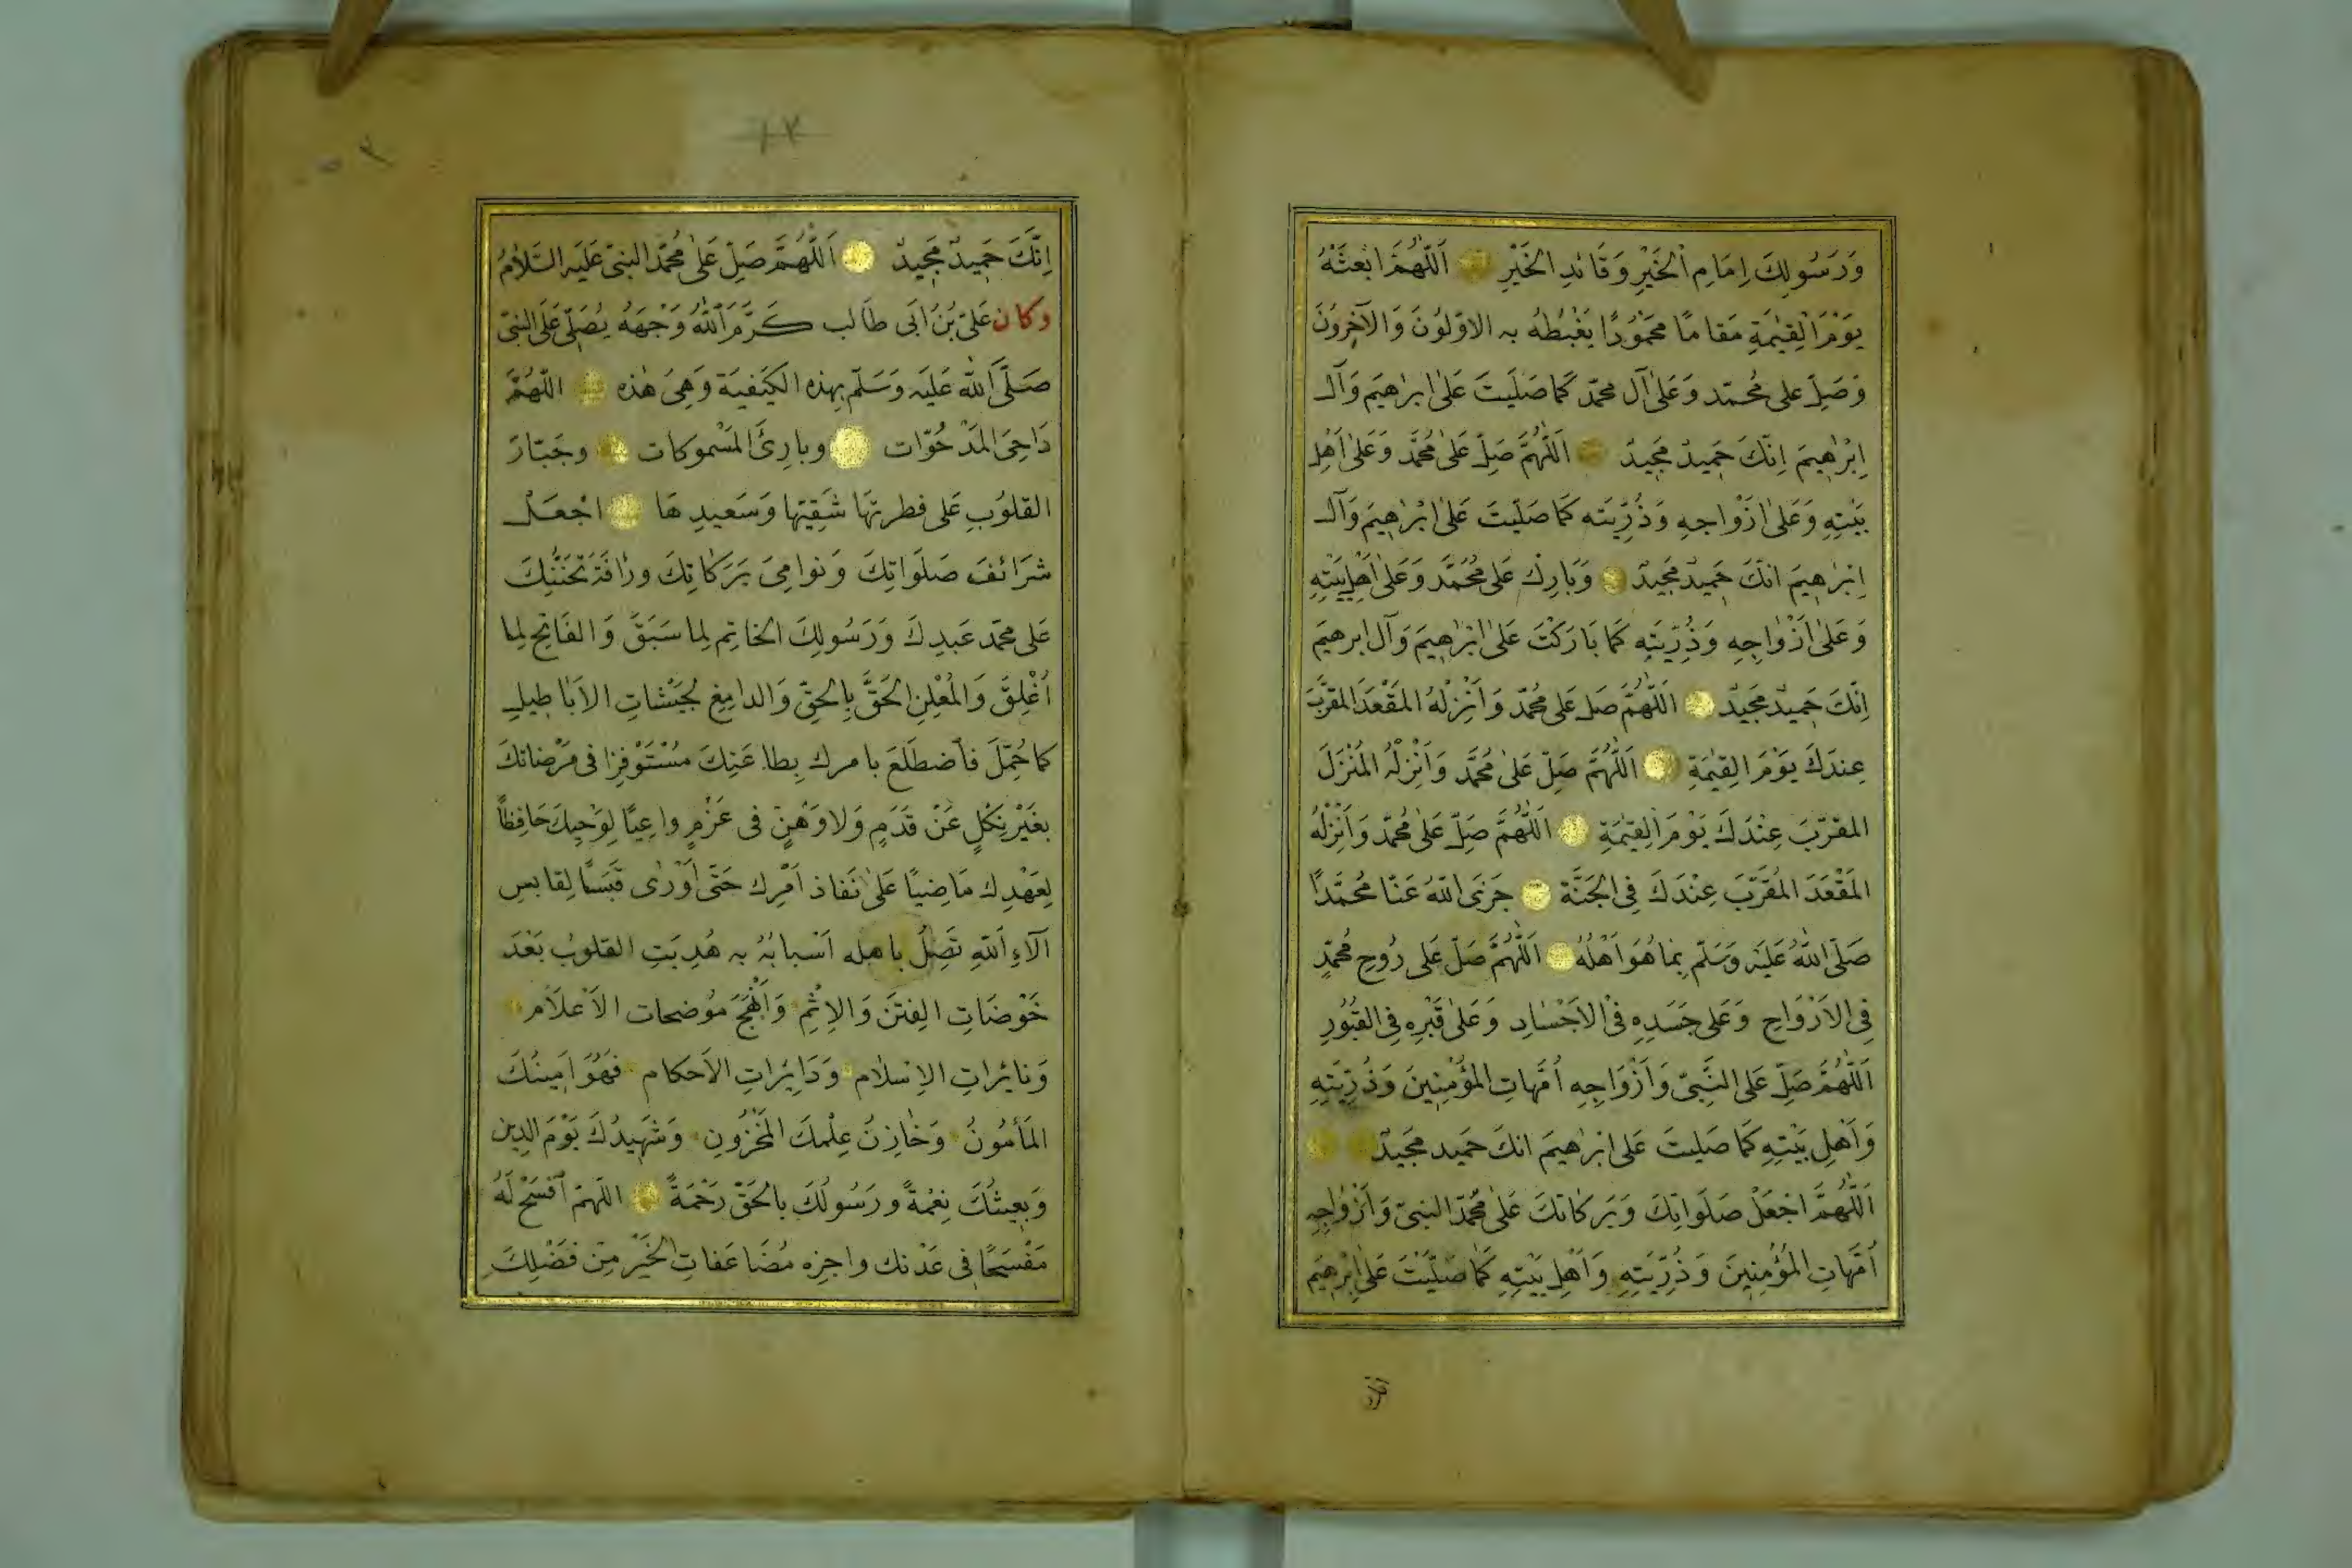 وَرَسُولِكَ اِمَامِ الْخَيْرِ وَقَائدِ الخَيْرِ اَللّٰهُمَّ ابْعَثْهُ
يَوْمَ الْقِيٰمَةِ مَقامًا مَحْمُوْدًا يَغْبِطُهُ بِهِ الاوّلوُنَ وَالآخِرُونَ
وَصَلِّ على مُحمّد وَعَلىٰ آل محمّد كَما صَلَيتَ عَلىٰ ابرٰهيَم وَآل
اِبْرٰهيمَ اِنّكَ حَمِيدٌ مَجِيدٌ اَللّٰهُمَّ صَلِّ عَلىٰ مُحمَّد وَعَلىٰ اَهْلِ
بَيْتِهِ وَعَلىٰ اَزْواجهِ وَذُرِّيته كَمَا صَلّيتَ عَلىٰ ابْرٰهِيمَ وَآل
اِبْرٰهِيمَ انّكَ حَمِيدٌ مَجِيدٌ وَبَارِكْ عَلىٰ مُحَمَّد وَعَلىٰ اَهْلِ بَيْتِهِ
وَعَلىٰ اَزْوٰاجِهِ وَذُرِّيَّتِهِ كَمَا بَارَكْتَ عَلىٰ اِبْرٰهِيمَ وَآل ابرهيَم
اِنّكَ حَمِيدٌ مَجِيدٌ اَللّٰهُمَّ صَلِّ عَلىٰ مُحمّد وَاَنْزِلْهُ المَقْعَدَ المقرَّبَ
عِندَكَ يَوْمَ القِيٰمَةِ اَللّٰهُمَّ صَلِّ عَلىٰ مُحمَّد وَاَنْزِلْهُ المَنْزَلَ
المقرّبَ عِنْدَكَ يَوْمَ القِيٰمَةِ اَللّٰهُمَّ صَلِّ عَلىٰ مُحمّد وَاَنْزِلْهُ
المَقْعَدَ المُقَرَّبَ عِنْدَكَ فِى الجَنَّة جَزَى اللّٰهُ عَنّا مُحمَّداً
صَلّى اللّٰهُ عَلَيْهِ وَسَلّم بِما هُوَ اَهْلُهُ اَللّٰهُمَّ صَلّ عَلى رُوحِ مُحمّدٍ
فِى الاَرْوَاحِ وَعَلى جَسَدِهِ فىْ الاَجْسٰادِ وَعَلىٰ قَبْرِهِ فِى القُبُورِ
اَللّٰهُمَّ صَلِّ عَلى النَّبِىّ وَاَزْوَاجِهِ اُمَّهاتِ المؤْمِنِينَ وَذُرِّيَّتِهِ
وَاَهْلِ بَيْتِهِ كَمَا صَلِيتَ عَلىٰ ابْرٰهيمَ انكَ حَمَيد مَجَيدٌ
اَللّٰهُمَّ اجْعَلْ صَلَوَاتِكَ وَبَرَكاتكَ عَلىٰ مُحَمّد النبىّ وَاَزْوٰاجِهِ
اُمّهاتِ المُؤْمِنِينَ وَذُرِّيّتِهِ وَاَهْلِ بَيْتِهِ كَمَا صَلّيْتَ عَلىٰ اِبْرٰهِيَم
اِنّكَ حَمِيدٌ مَجِيدٌ اَللّٰهُمَّ صَلِّ عَلىٰ مُحمّد النبىّ عَلَيهِ السَّلاٰمُ
وكان عَلىّ بْنُ اَبى طالب كَرَّمَ اللّٰهُ وَجْهَهُ يُصَلّى عَلَى النبىّ
صَلَّى اللّٰه عَلَيْه وَسَلّم بِهذه الكيَفيَة وَهِىَ هٰذه اللّٰهُمَّ
دَاحِىَ المَدْحُوّات وبارِئَ المَسْموكات وجَبّارَ
القلوُبِ عَلى فطرتهَا شَقِيّهَا وَسَعيدِهَا اجْعَلْ
شرَائفَ صَلَوَاتِكَ وَنوامِىَ بَرَكاتِكَ ورَأفَةَ تَحَنُّنِكَ
عَلى محمّد عَبدِكَ وَرَسُولِكَ الخاتِم لِما سَبَقَ وَالفَاتِحِ لِما
اُغْلِقَ وَالمُعْلِنِ الحَقَّ بِالحَقّ وَالدامِغِ لجَيْشاتِ الاَباطيلِ
كما حُمّلَ فاَضطَلَعَ بامرك بِطاعَتِكَ مُسْتَوْفِزا فى مَرْضاتكَ
بغَيْر نكْلٍ عَنْ قَدَمٍ وَلا وَهْنٍ فى عَزْمٍ واعِيًا لِوَحْيِكَ حَافِظاً
لِعَهْدِك مَاضِيًا عَلىٰ نَفاذ اَمْرِك حَتّى اَوْرٰى قَبَساً لِقابس
آلاءِ اللّٰهِ تَصِلُ باهله اَسْبابُهُ به هُدِيَتِ القلوبُ بَعْدَ
خَوْضَاتِ الفِتَنَ وَالاِثْمِ وَاَبْهَجَ مُوْضحات الاَعْلاَم
وَنائراتِ الاِسْلاٰم وَدَايِرَاتِ الاَحكام فَهُوَ اَمِينُكَ
المَأمُونُ وَخٰازِنُ عِلْمكَ المَخْزُونِ وَشَهِيدُكَ يَوْمَ الدِين
وَبعِيثُكَ نِعْمَةً ورَسُولُكَ بالحَقّ رَحْمَةً اللّهمّ افْسَحْ لَهُ
مَفْسَحًا فى عَدْنك واجزِه مُضَاعَفاتِ الخَيْر مِنْ فَضْلِكَ